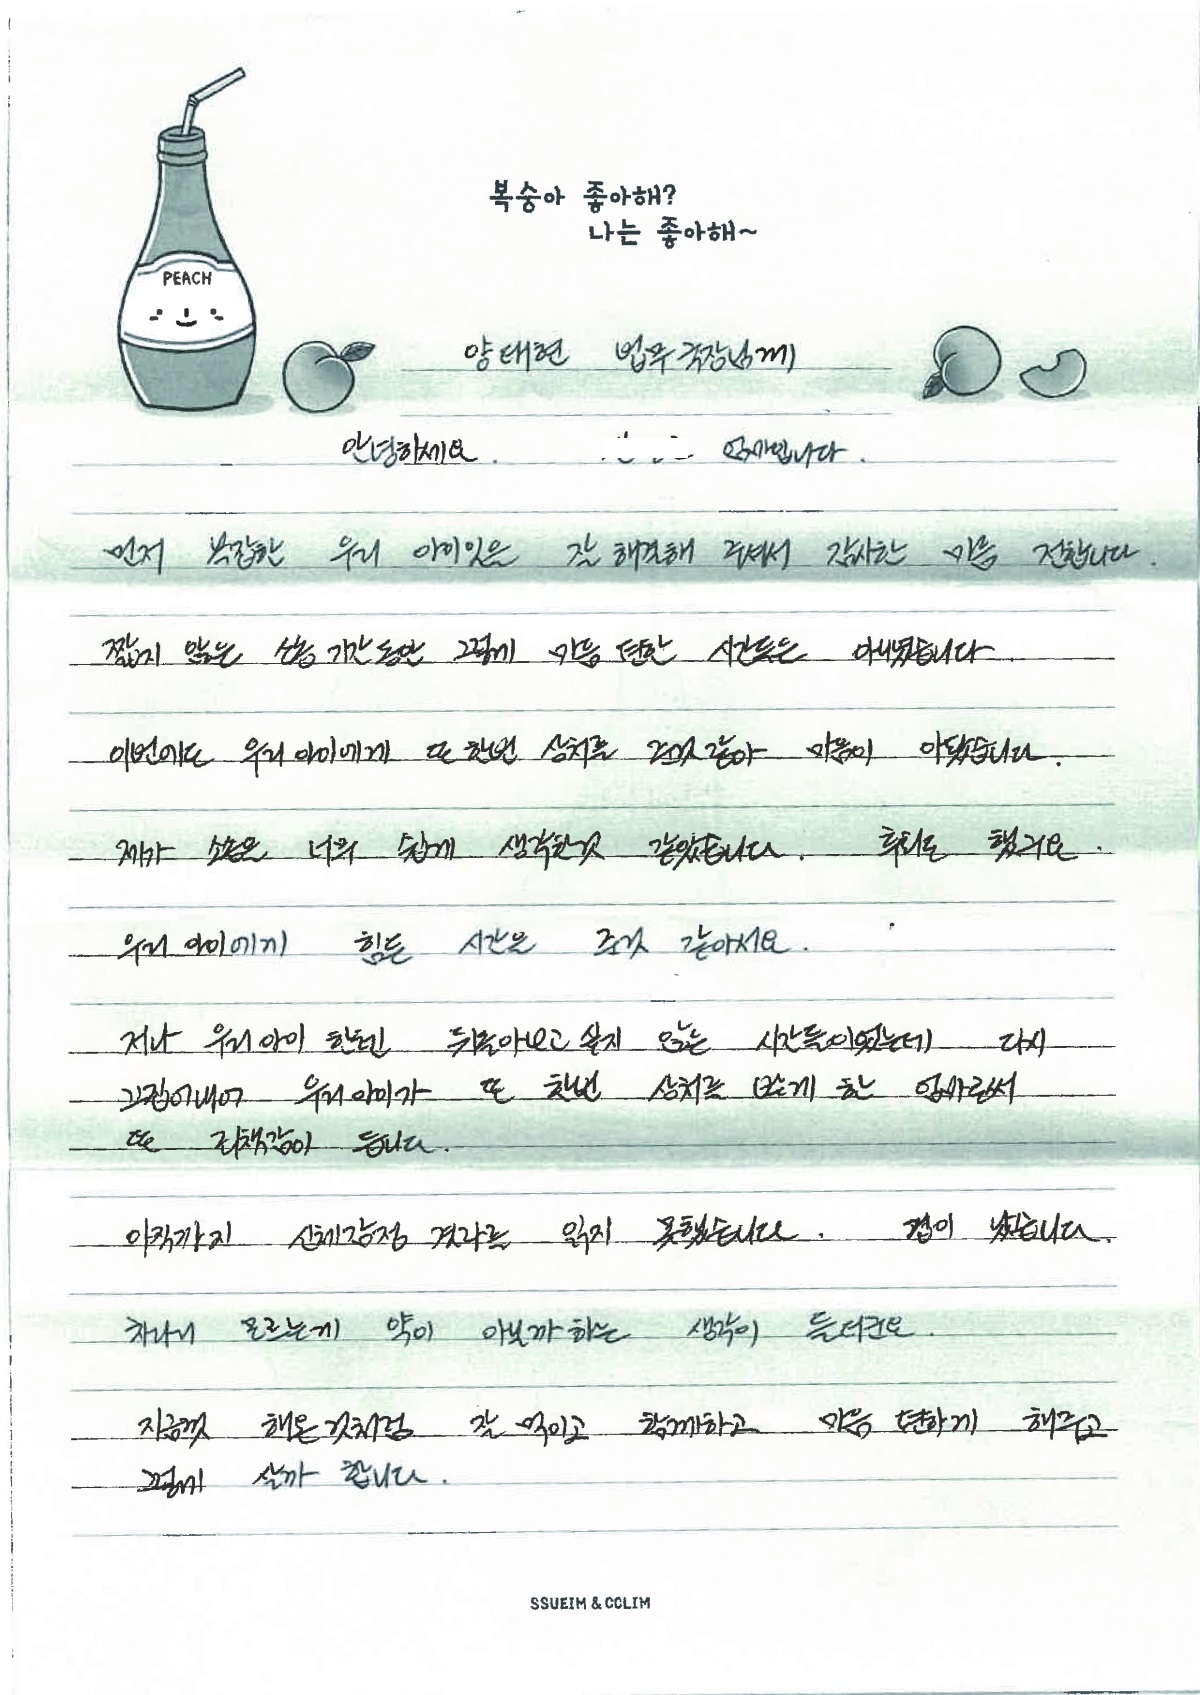 복숭아 좋아해?
나는 좋아해~
PEACH
양태현 법무국장님께
안녕하세요. 엄마입니다.
먼저 복잡한 우리 아이일은 잘 해결해 주셔서 감사한 마음 전합니다.
짧지 않은 소송 기간동안 그렇게 마음 편한 시간들은 아니였습니다.
이번에도 우리 아이에게 또 한번 상처를 준것 같아 마음이 아팠습니다.
제가 소송은 너무 쉽게 생각한것 같았습니다. 후회도 했구요.
우리 아이에게 힘든 시간은 준것 같아서요.
저나 우리 아이 한테 뒤돌아보고 싶지 않는 시간들이였는데 다시
끄집어내어 우리 아이가 또 한번 상처를 받게 한 엄마로써
또 죄책감이 듭니다.
아직까지 신체감정 결과를 읽지 못했습니다. 겁이 났습니다.
차라리 모르는게 약이 아닐까 하는 생각이 들더군요.
지금껏 해온것처럼 잘 먹이고 함께하고 마음 편하게 해주고
그렇게 살까 합니다.
SSUEIM & CCLIM